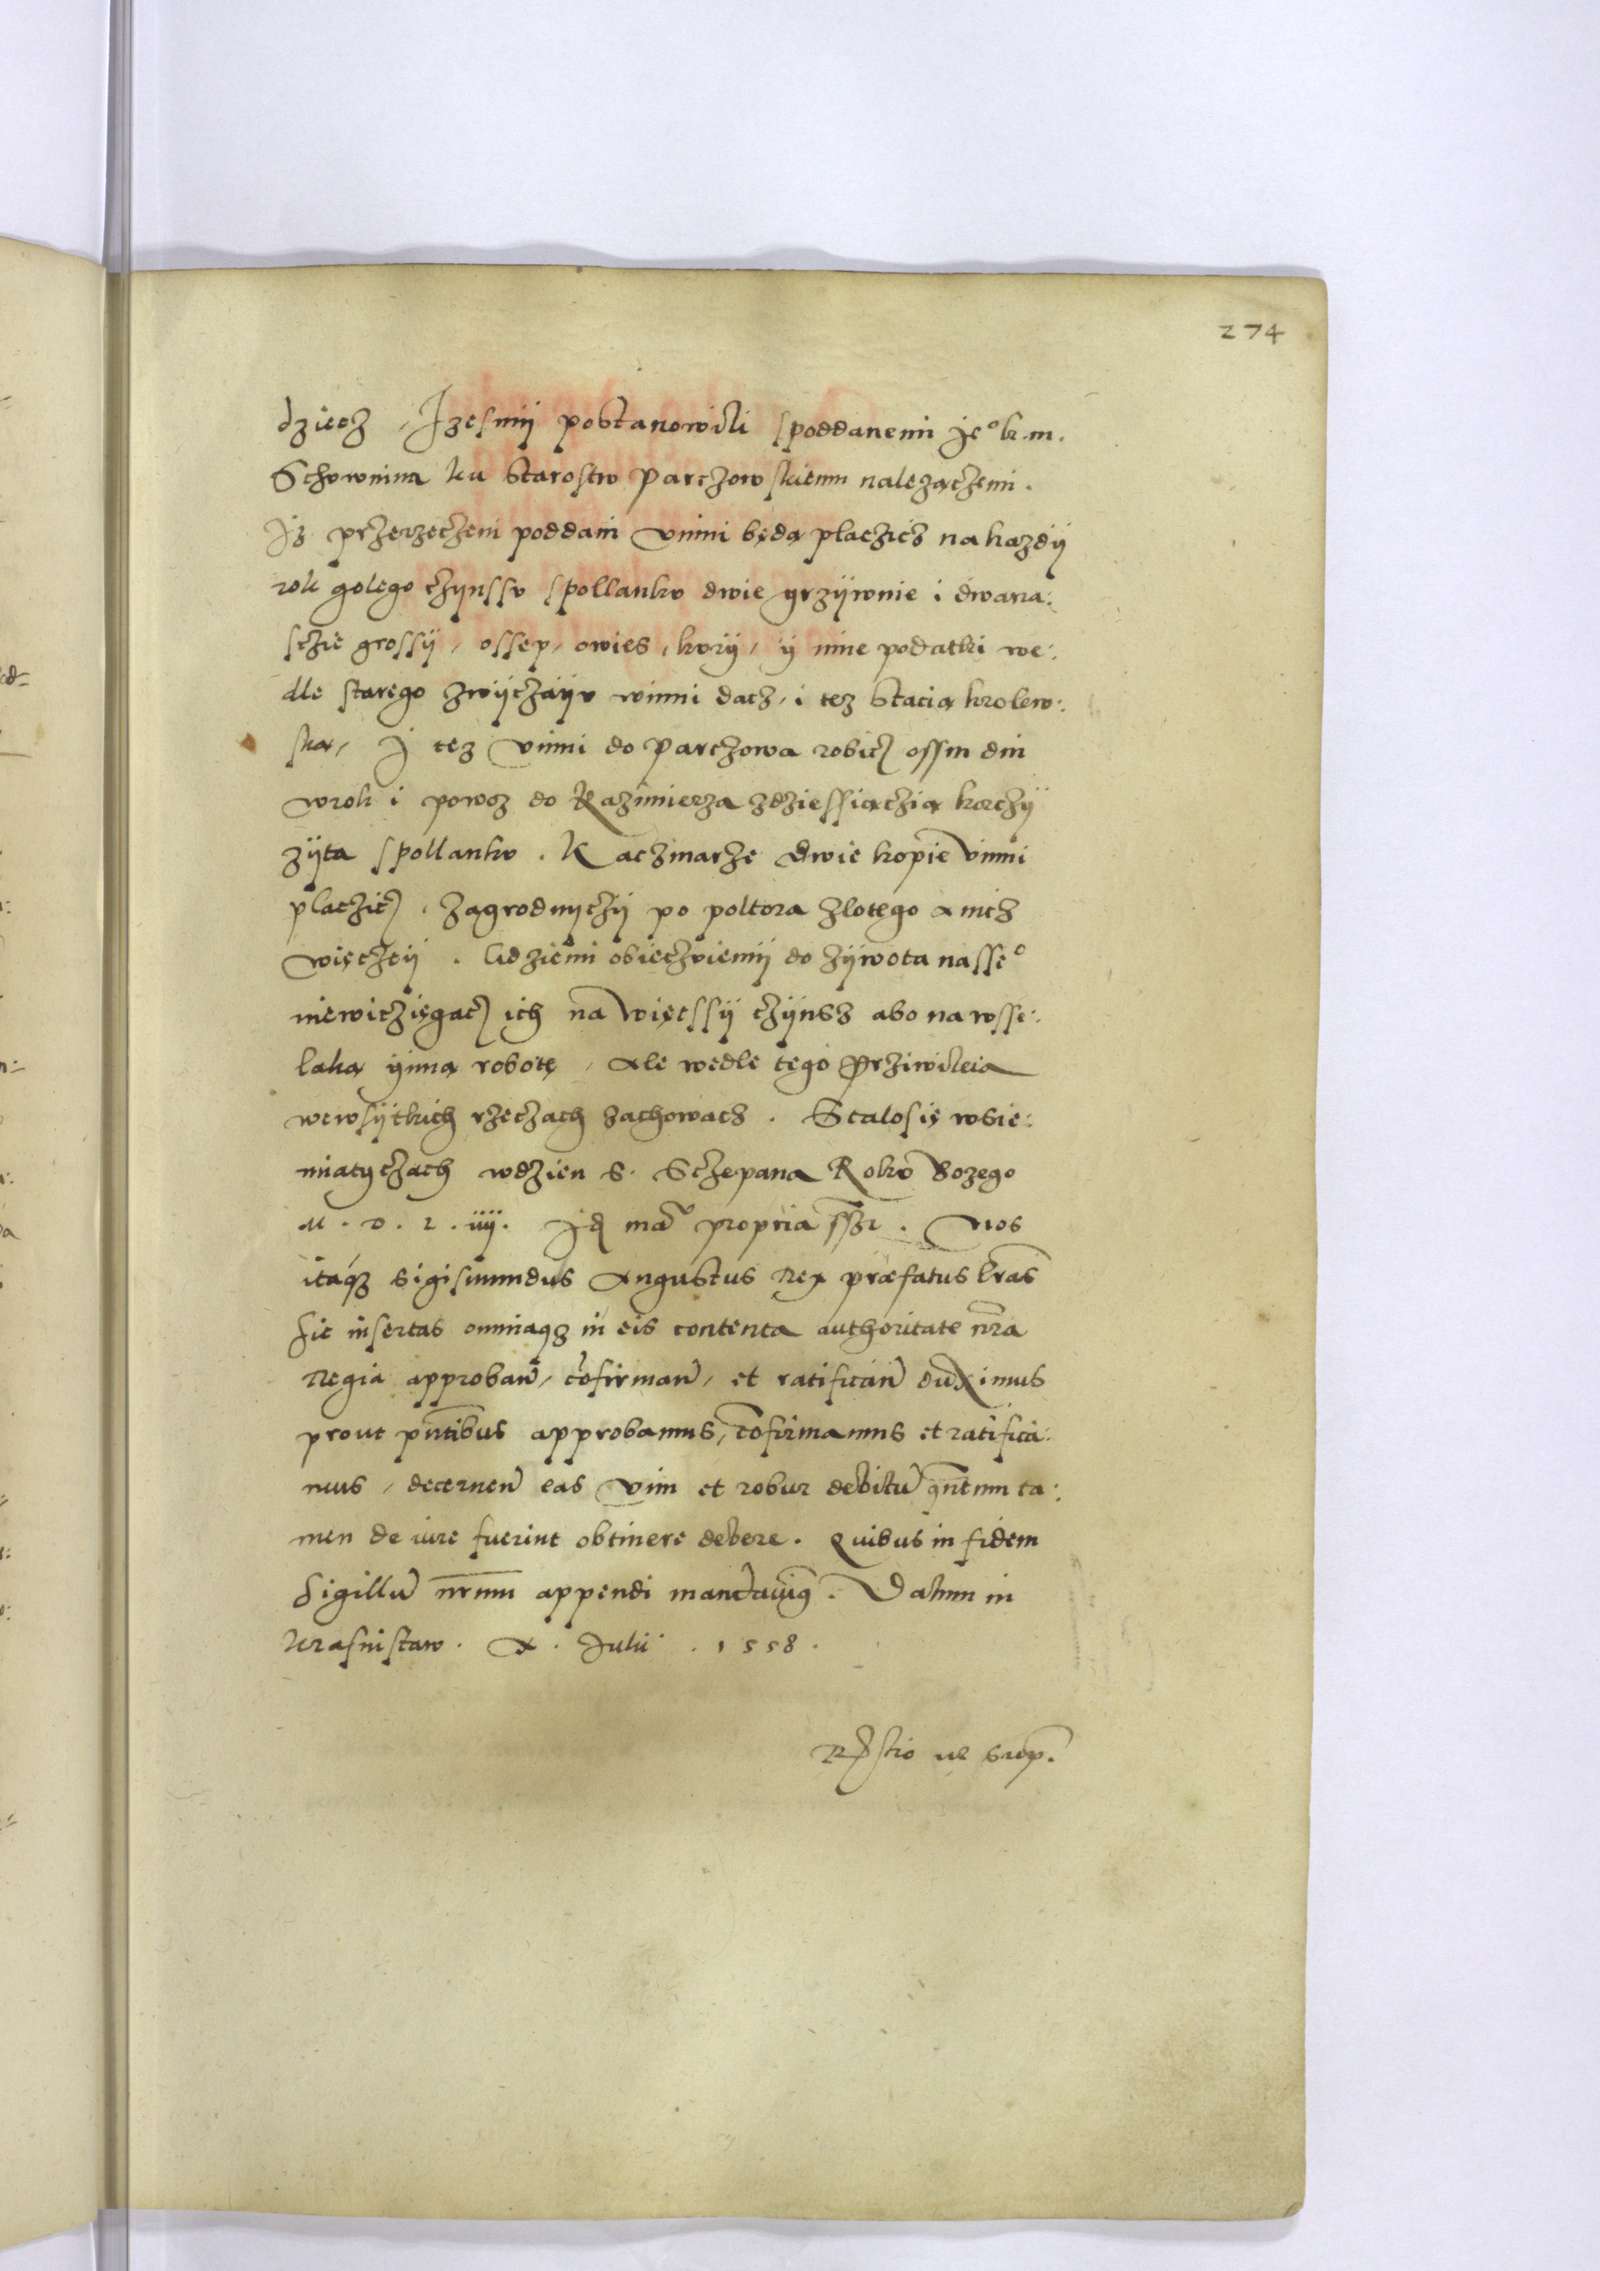 274
dziecz, Jzesmÿ postanowili spoddanemi Je° k. m.
Schownina ku starostw parczowskiemu nalezączemi.
Jż przerzeczeni poddani vinni będą placzicz na kazdÿ
rok golego czÿnssv spollankv dwie grzÿwnie i dwana:
sczie grossÿ, ossep, owies, kurÿ, ÿ inne podatki we:
dle starego zwÿczaÿv winni dacz, i tez stacią krolew:
ską, J tez vinni do parczowa robicz ossm dni
wrok i powoz do Kazimierza zdziessiączią korczÿ
zÿta spollankv. Kaczmarze dwie kopie vinni
placzicz, Zagrodniczÿ po poltora zlotego a nicz
więczeÿ. Gdziemi obieczviemÿ do zÿwota nasse°
niewiczięgacz ich na więcssÿ czÿnsz abo na wsse:
laką ÿnną robotę, ale wedle tego prziwileia
wewsÿtkich rzeczach zachowacz. Stalosię wSie:
miatyczach wdzien S. Sczepana Rokv bozego
M. D. L. iiij. Jd man° propria sszt. Nos
itaqz Sigismundus Augustus Rex præfatus lr̃as
sic insertas omniaqz in eis contenta authoritate nr̃a
Regia approban̄, cōfirman̄, et ratifican̄ duximus
prout pn̄tibus approbamus, cōfirmamus et ratifica:
mus, decernen̄ eas vim et robur debitū qn̄tum ta:
men de iure fuerint obtinere debere. Quibus in fidem
Sigillū nr̄um appendi mandavimq. Datum in
Krasnistaw. X. Julii. 1558.
Rx̃stio ut sup̄.